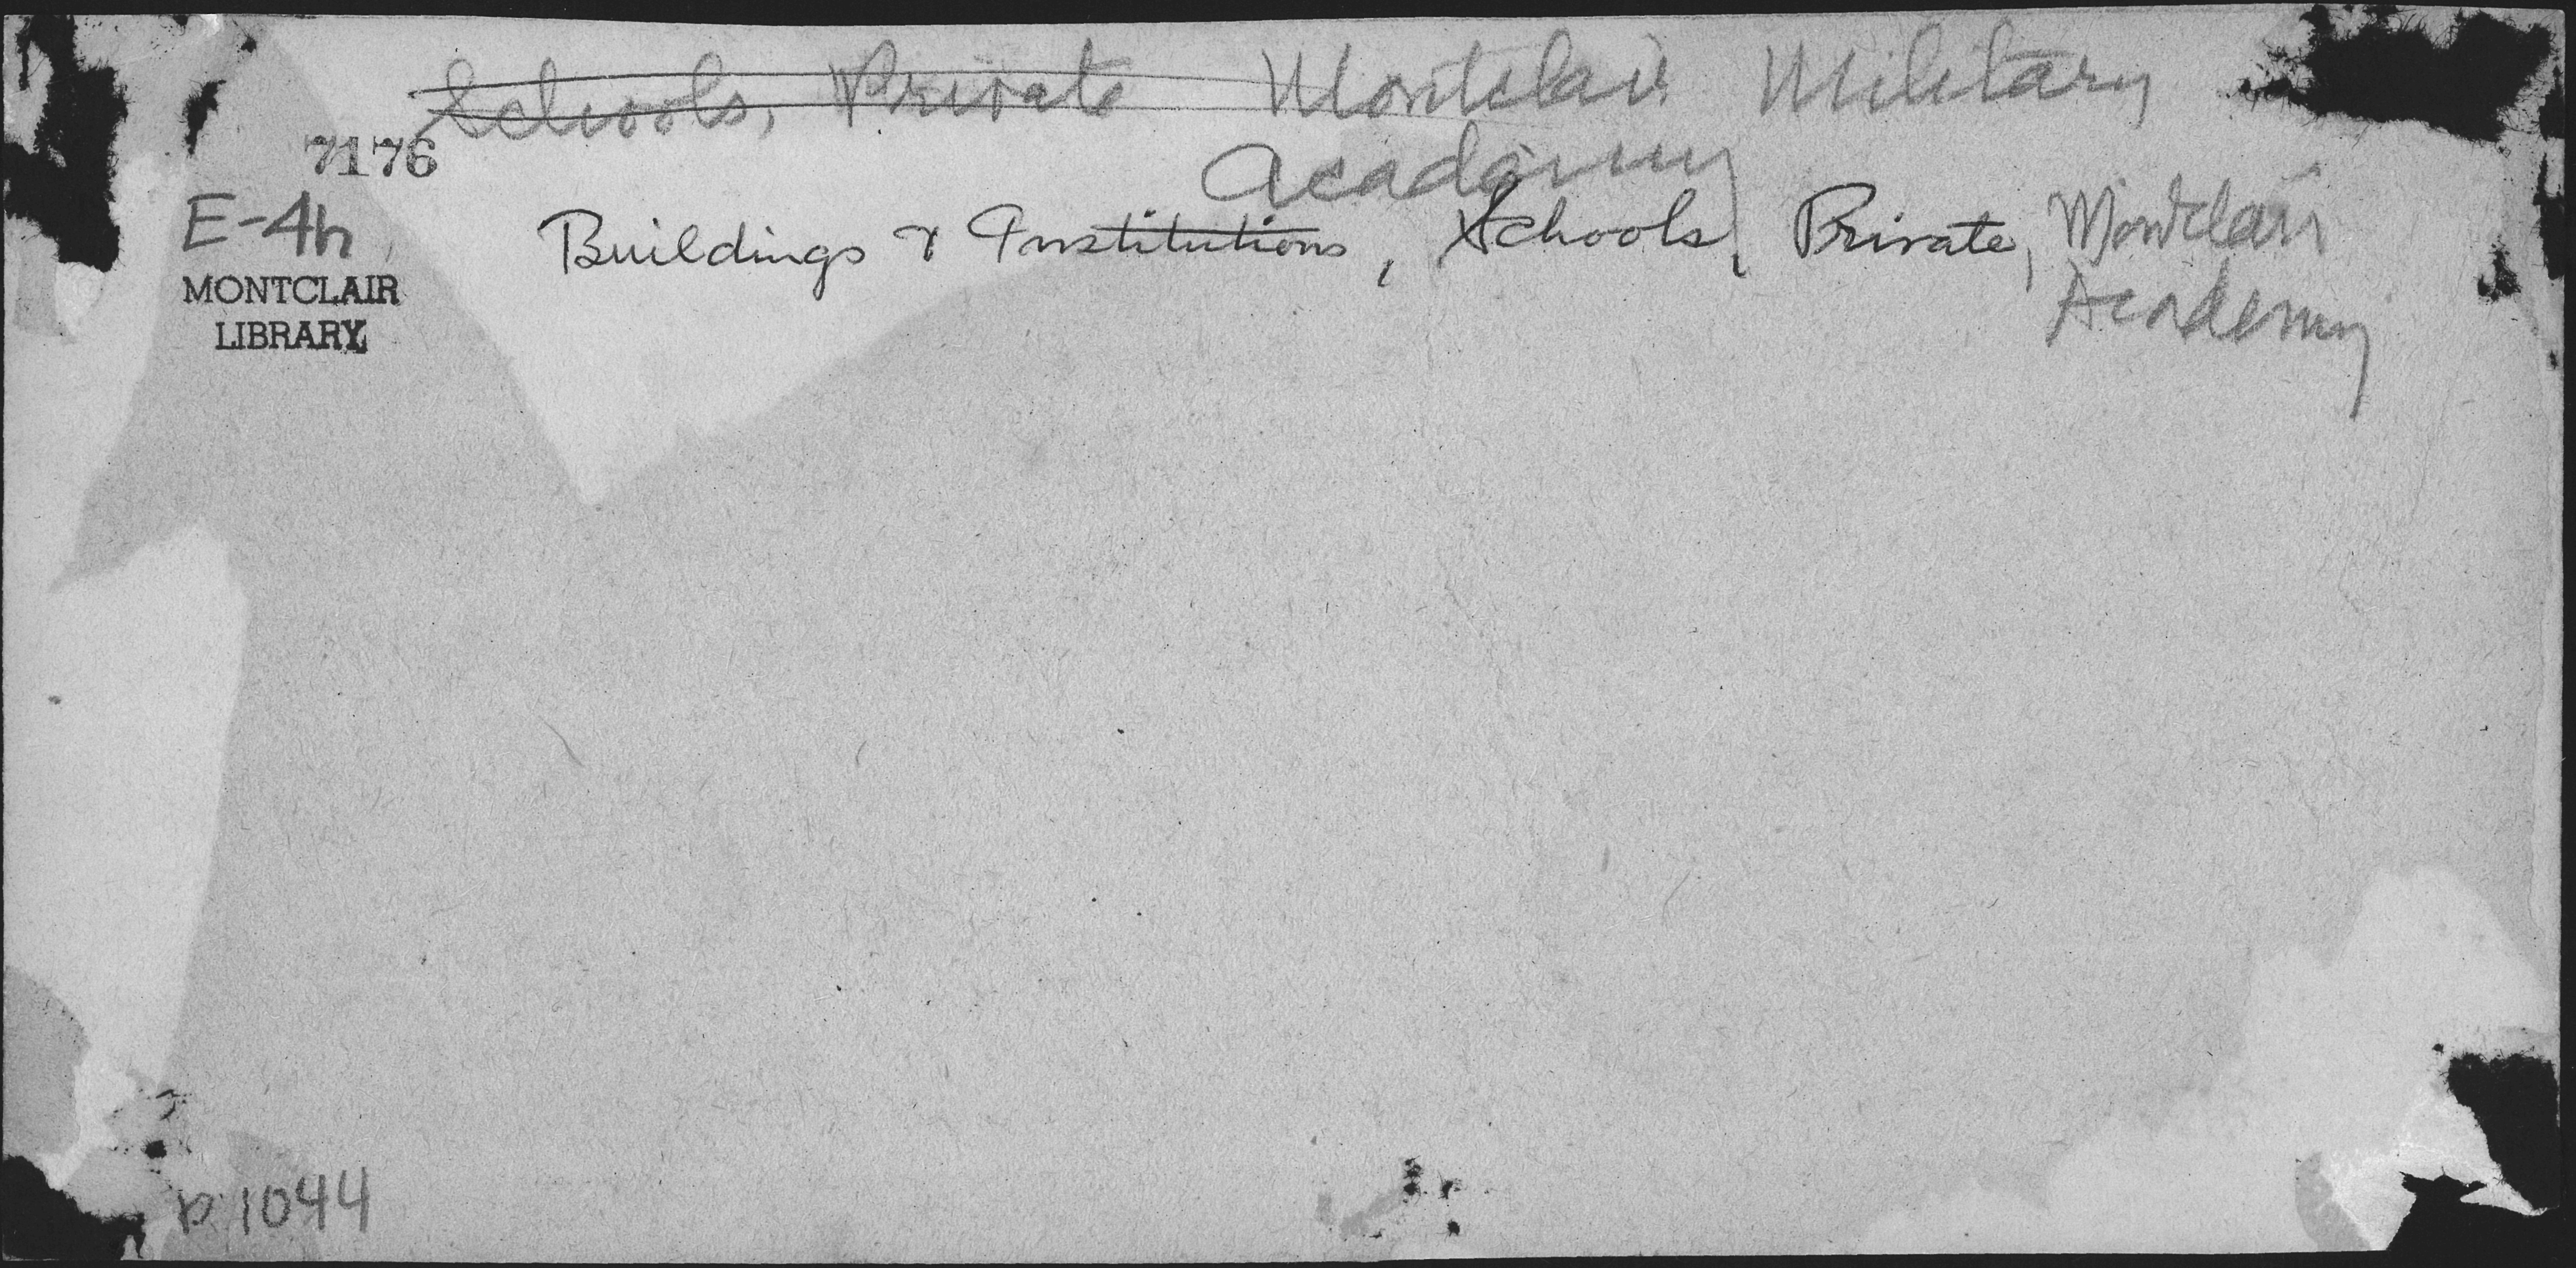 Schools, Private Montclair Military
Academy
7176
E-4h
MONTCLAIR
LIBRARY
Buildings & Institutions, Schools, Private, Montclair
Academy
p 1044